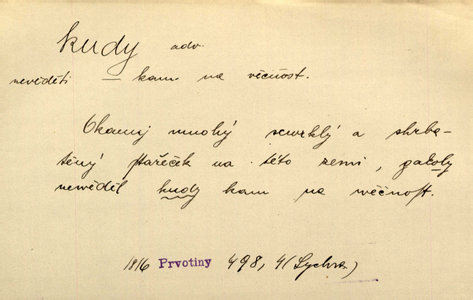 kudy adv.
nevěděti — kam na věčnost.
mnohý scvrklý a shrba-
těný stařeček na této zemi, gakoby
newěděl kudy kam na wěčnost.
1816 Prvotiny 498, 4 (Sychra)